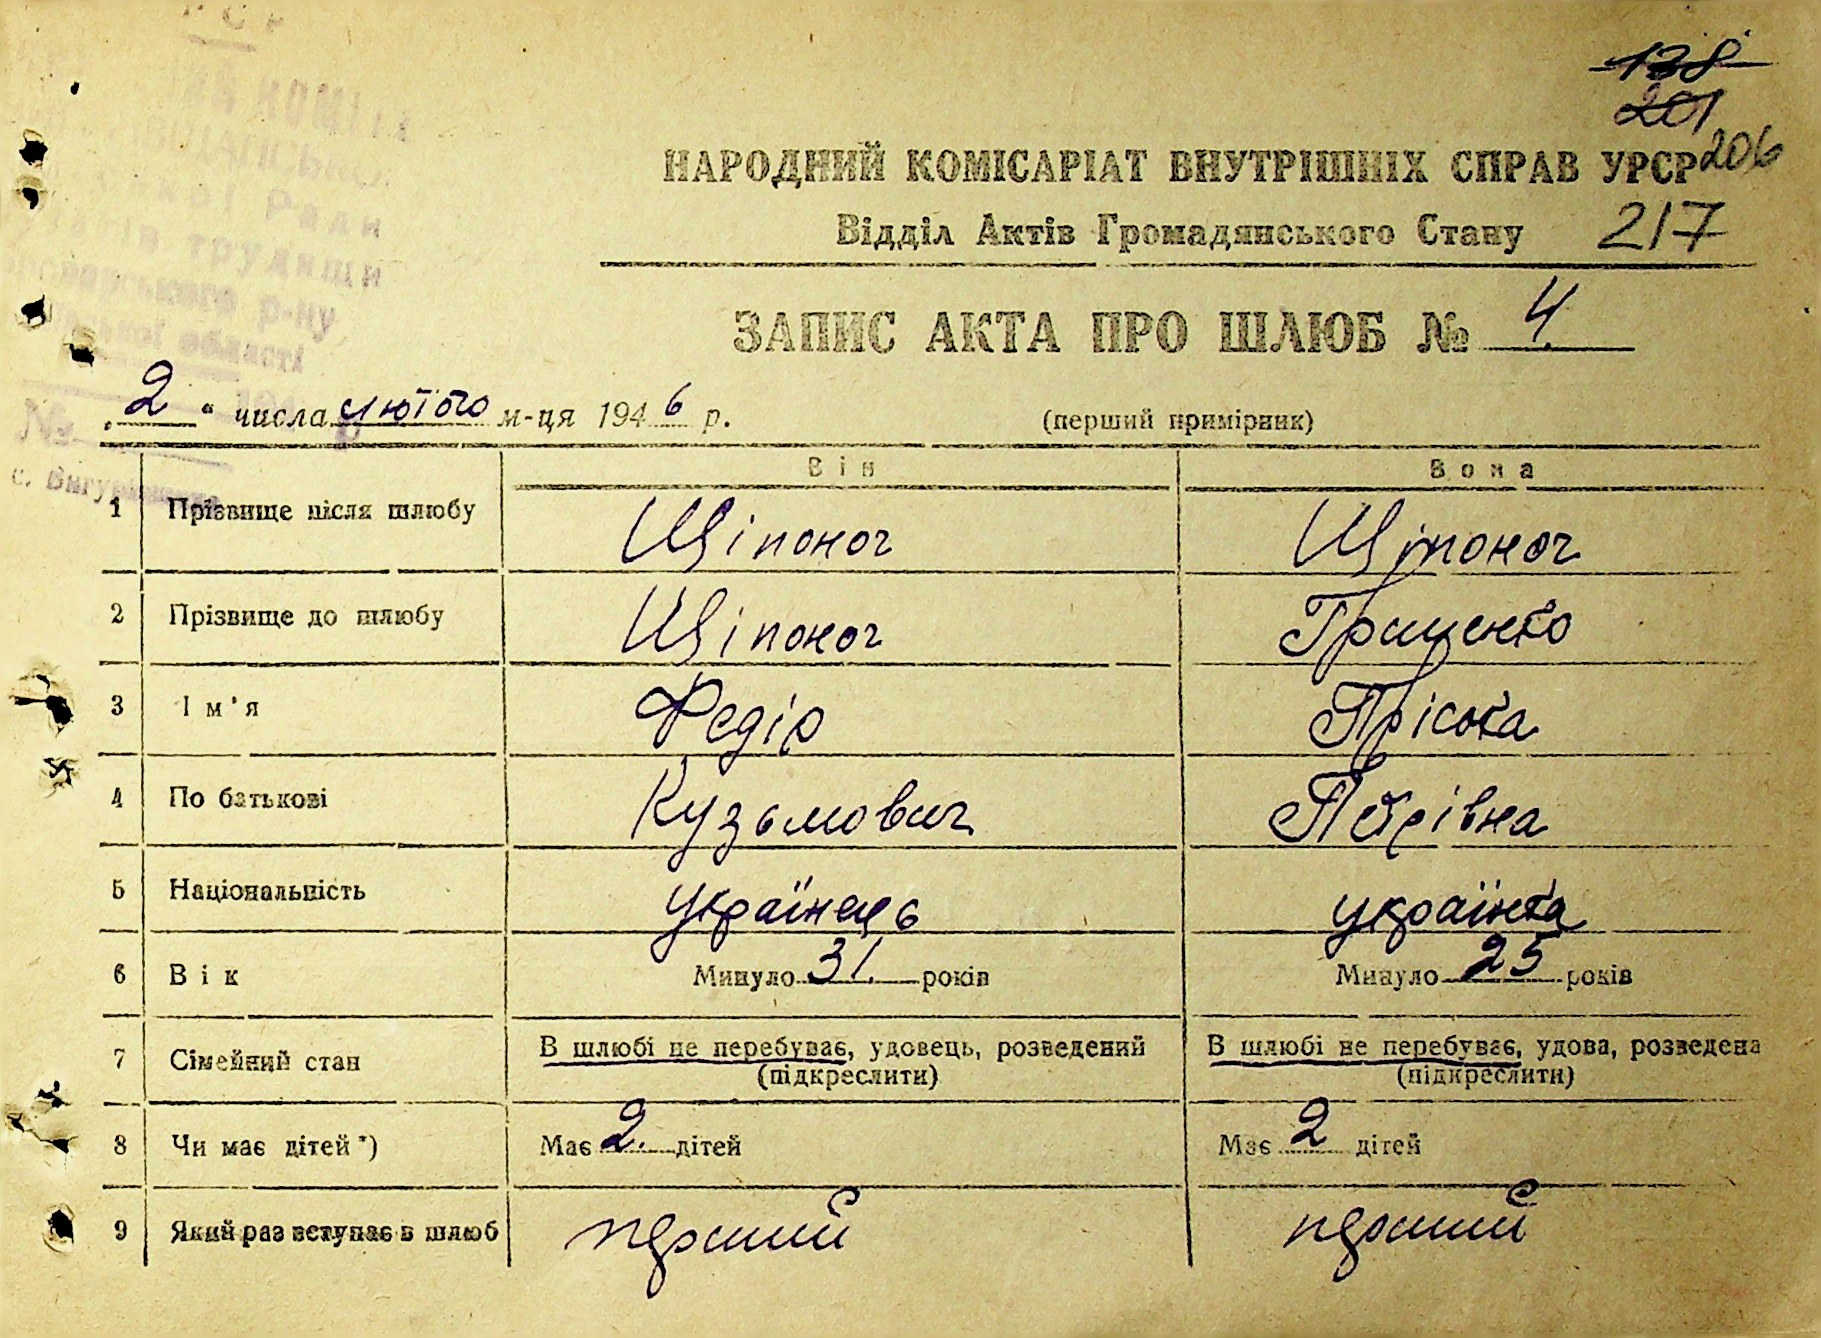 138
201
НАРОДНИЙ КОМІСАРІАТ ВНУТРІШНІХ СПРАВ УРСР 206
Відділ Актів Громадянського Стану 217
ЗАПИС АКТА ПРО ШЛЮБ № 4.
„2“ числа лютого м-ця 1946 р. (перший примірник)
Він Вона
1 Прізвище після шлюбу Щіпоноч Щіпоноч
2 Прізвище до шлюбу Щіпоноч Гриценко
3 Ім'я Федір Пріська
4 По батькові Кузьмович Петрівна
5 Національність українець українка
6 Вік Минуло 31. років Минуло 25 років
7 Сімейний стан В шлюбі не перебуває, удовець, розведений В шлюбі не перебуває, удова, розведена
(підкреслити) (підкреслити)
8 Чи має дітей*) Має 2. дітей Має 2 дітей
9 Який раз вступає в шлюб перший перший
Ради
трудящи
р-ну
області
№